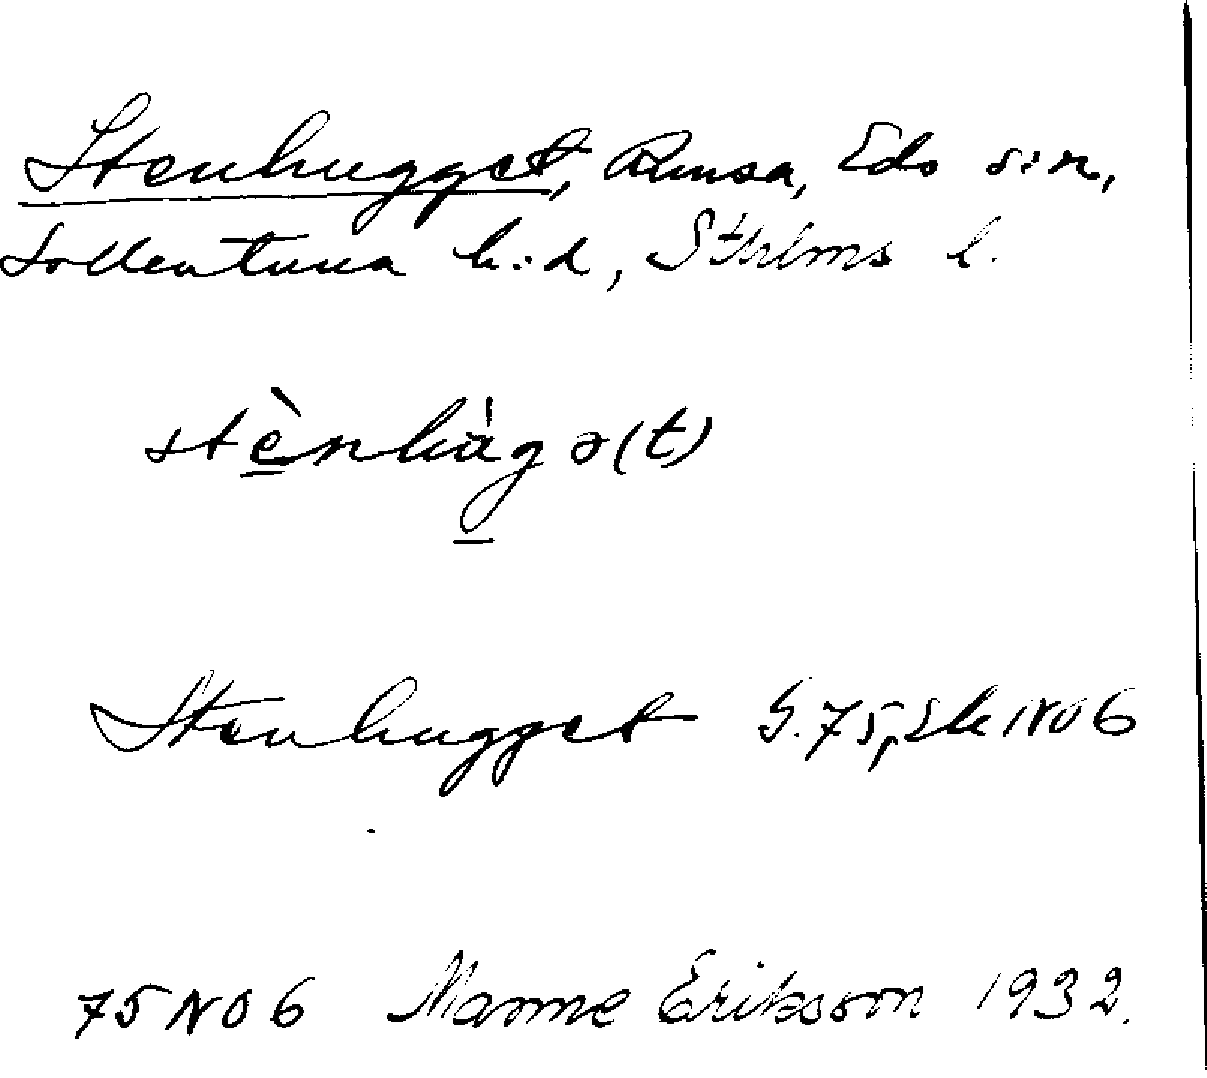 Stenhugget, Runsa, Eds s:n,
Sollentuna h:d, Sthlms l.
stènhàgə(t)
Stenhugget G. 75, Ek NO 6
75 NO 6 Manne Eriksson 1932.